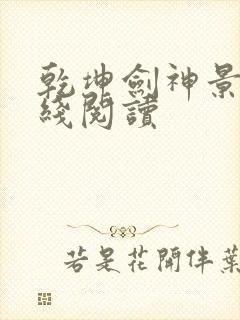 乾坤劍神景
綫閱讀
若是花開伴葉